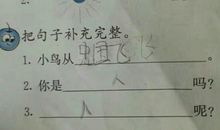 把句子补充完整。
1. 小鸟从 飞飞 。
2. 你是 人 吗?
3. 人 呢?